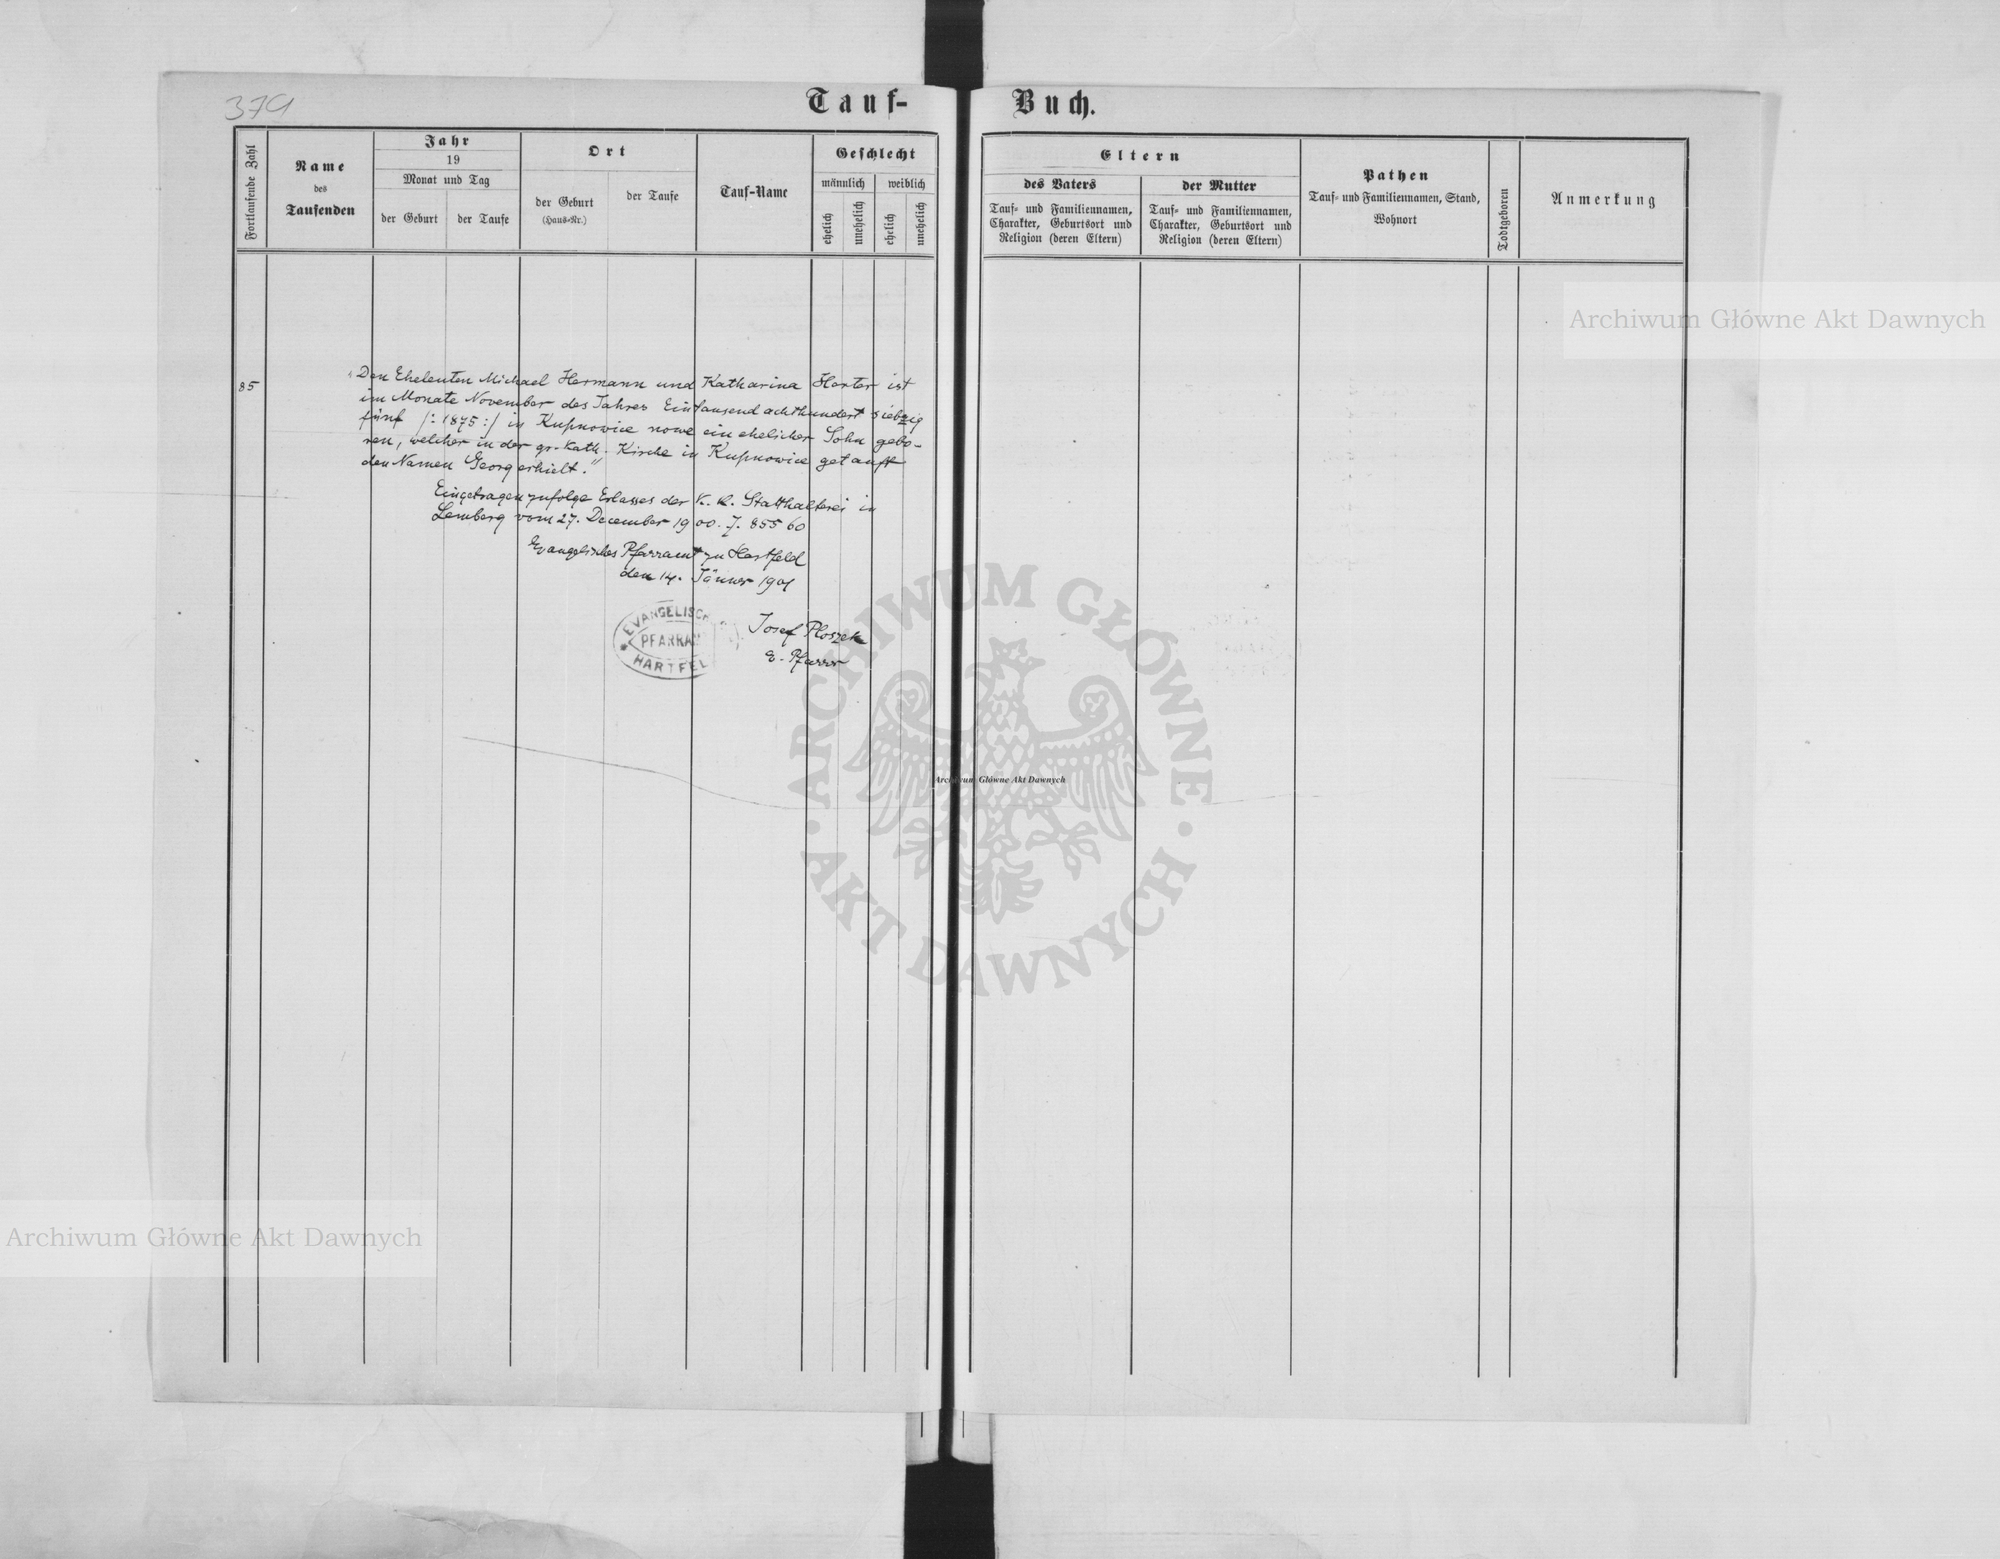 379
Tauf-Buch.
Fortlaufende Zahl
Name
des
Taufenden
Jahr
19
Monat und Tag
der Geburt
der Taufe
Ort
der Geburt
(Haus-Nr.)
der Taufe
Tauf-Name
Geschlecht
männlich
weiblich
ehelich
unehelich
ehelich
unehelich
Eltern
des Vaters
Tauf- und Familiennamen,
Charakter, Geburtsort und
Religion (deren Eltern)
der Mutter
Tauf- und Familiennamen,
Charakter, Geburtsort und
Religion (deren Eltern)
Pathen
Tauf- und Familiennamen, Stand,
Wohnort
Todtgeboren
Anmerkung
85
„Den Eheleuten Michael Hermann und Katharina Harter ist
im Monate November des Jahres Eintausend achthundert siebzig
fünf /: 1875 :/ in Kupnowice nowe ein ehelicher Sohn gebo-
ren, welcher in der gr. kath. Kirche in Kupnowice getauft
den Namen Georg erhielt.“
Eingetragen zufolge Erlasses der k. k. Statthalterei in
Lemberg vom 27. December 1900. Z. 85560
Evangelisches Pfarramt zu Hartfeld
den 14. Jänner 1901
Josef Ploszek
e. Pfarrer
EVANGELISCH
PFARRA
HARTFEL
Archiwum Główne Akt Dawnych
ARCHIWUM GŁÓWNE
AKT DAWNYCH
Archiwum Główne Akt Dawnych
Archiwum Główne Akt Dawnych